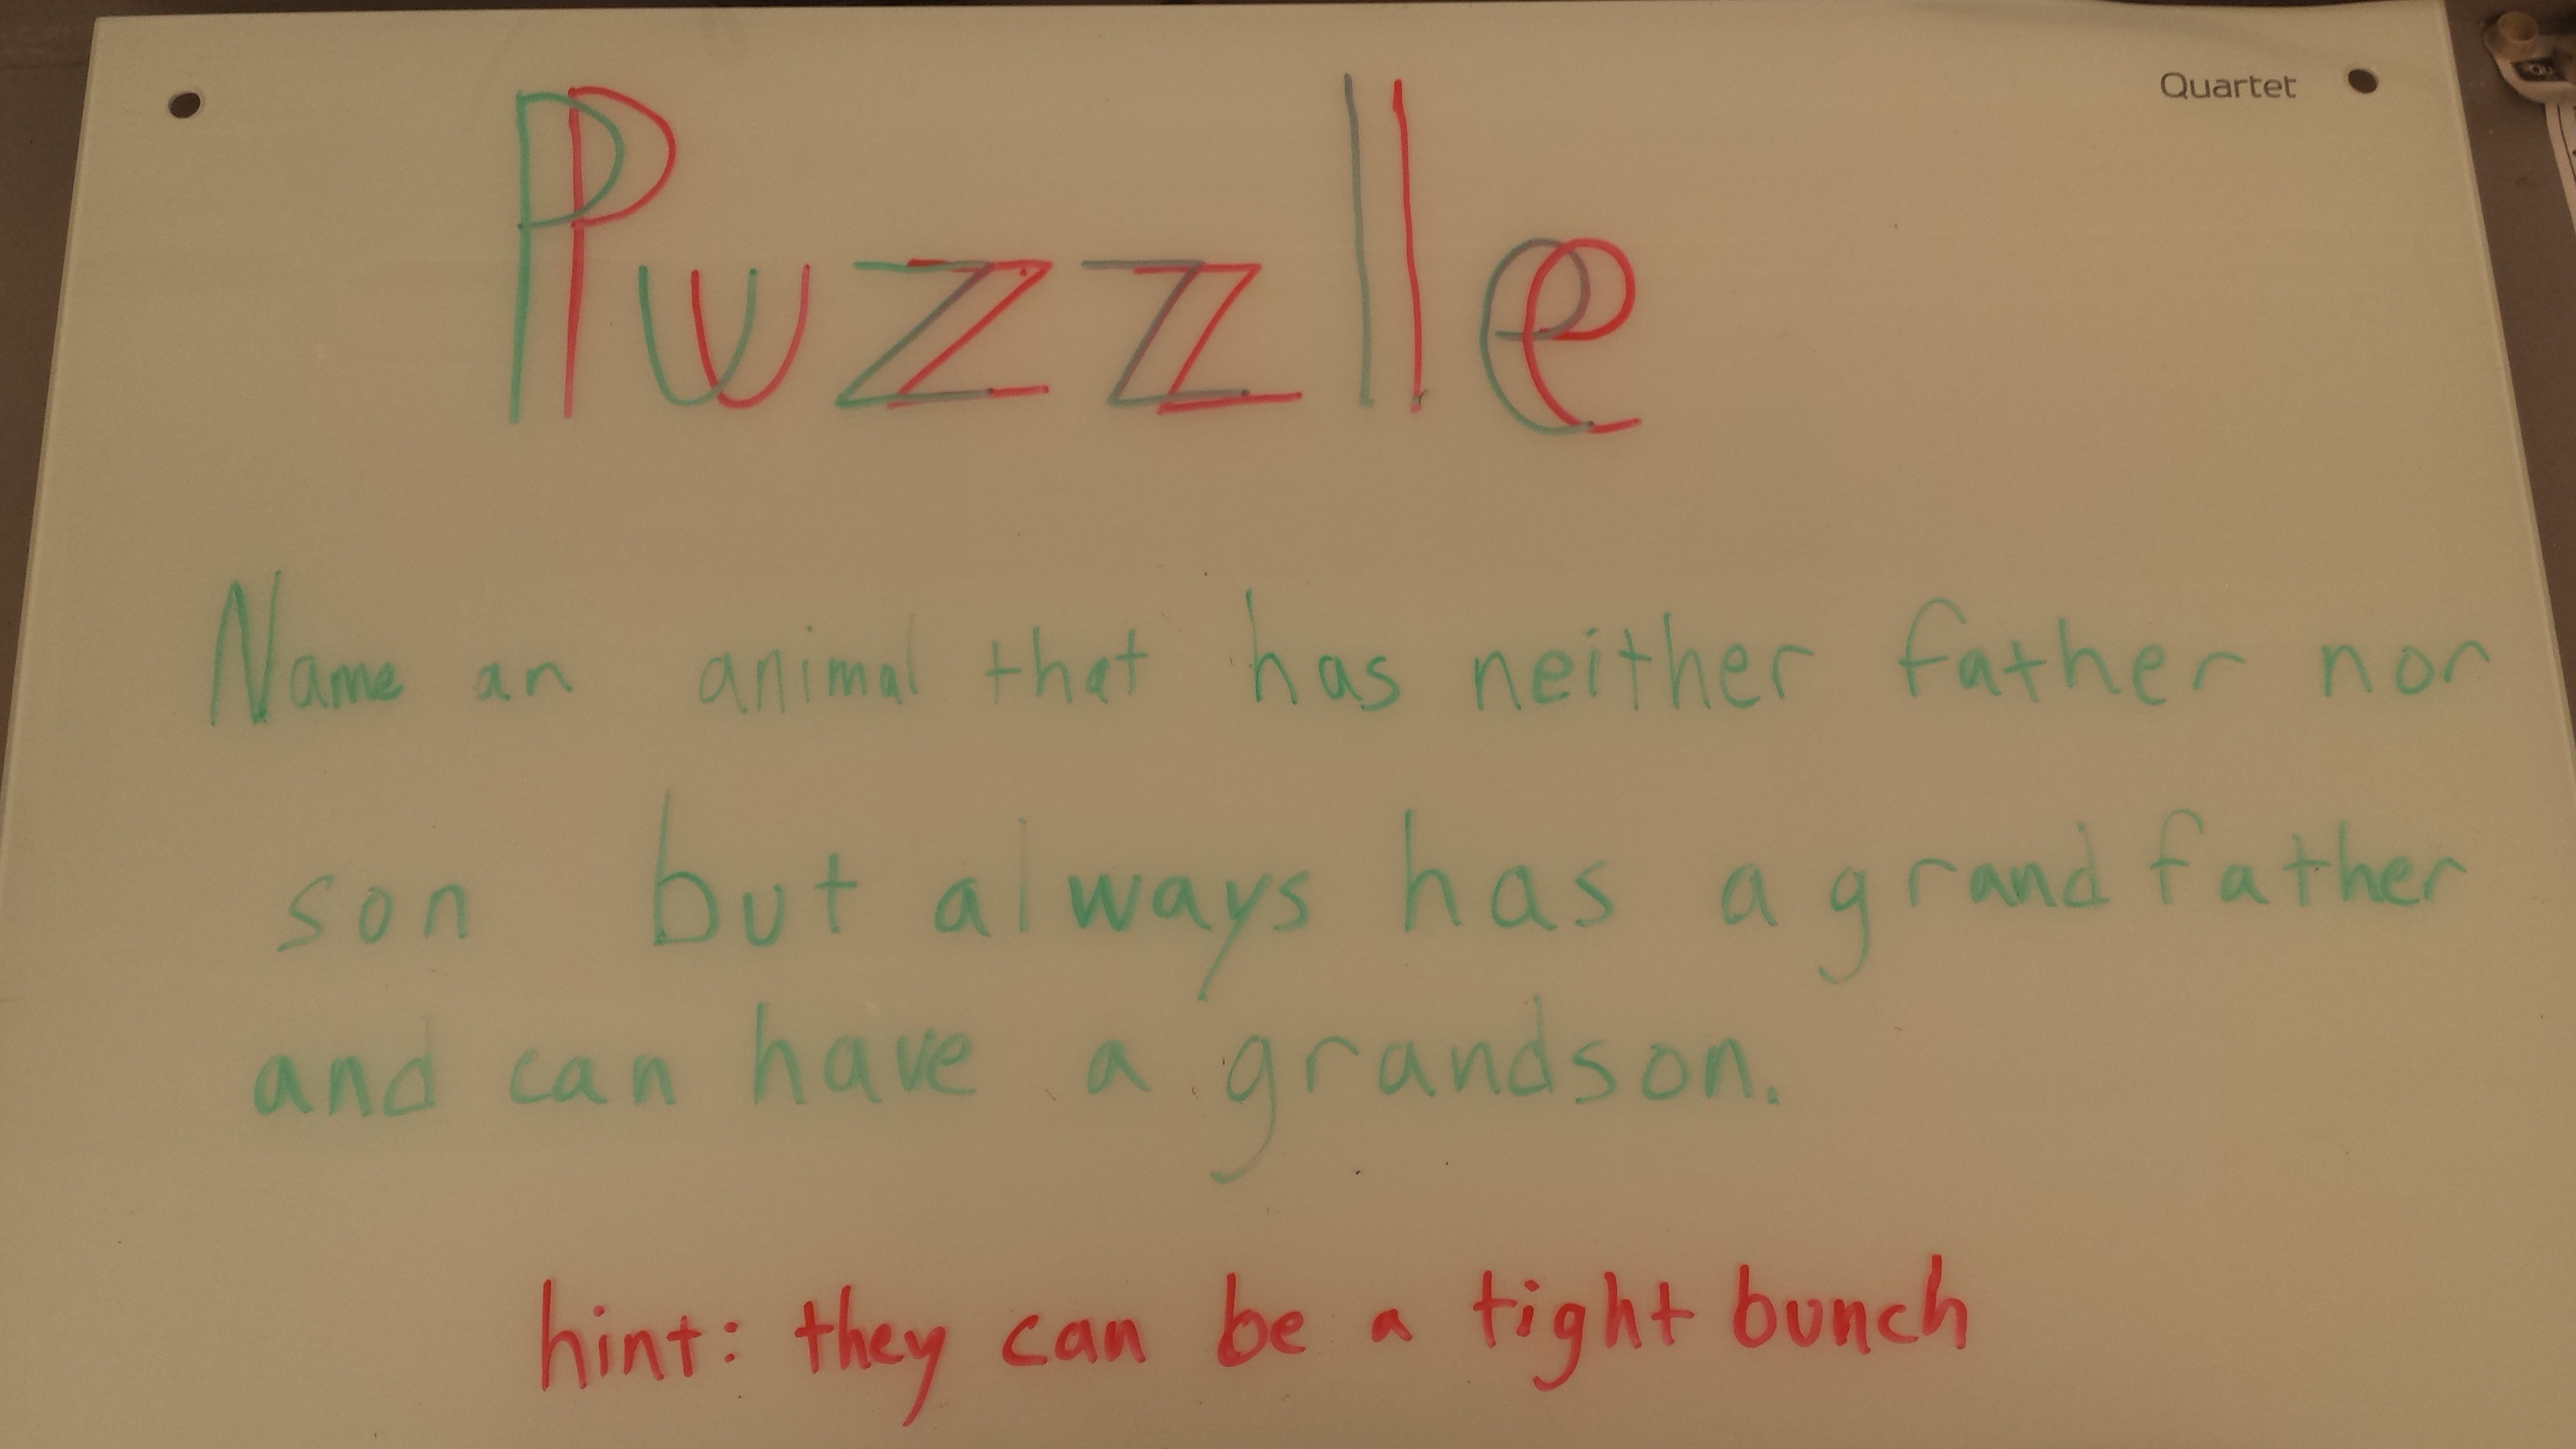 Quartet
Puzzle
Name an animal that has neither father nor
son but always has a grandfather
and can have a grandson.
hint: they can be a tight bunch